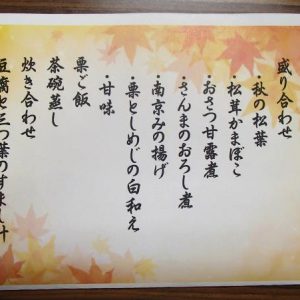 盛り合わせ
・秋の松葉
・松茸かまぼこ
・おさつ甘露煮
・さんまのおろし煮
・南京みの揚げ
・栗としめじの白和え
・甘味
栗ご飯
茶碗蒸し
炊き合わせ
豆腐と三つ葉のすまし汁